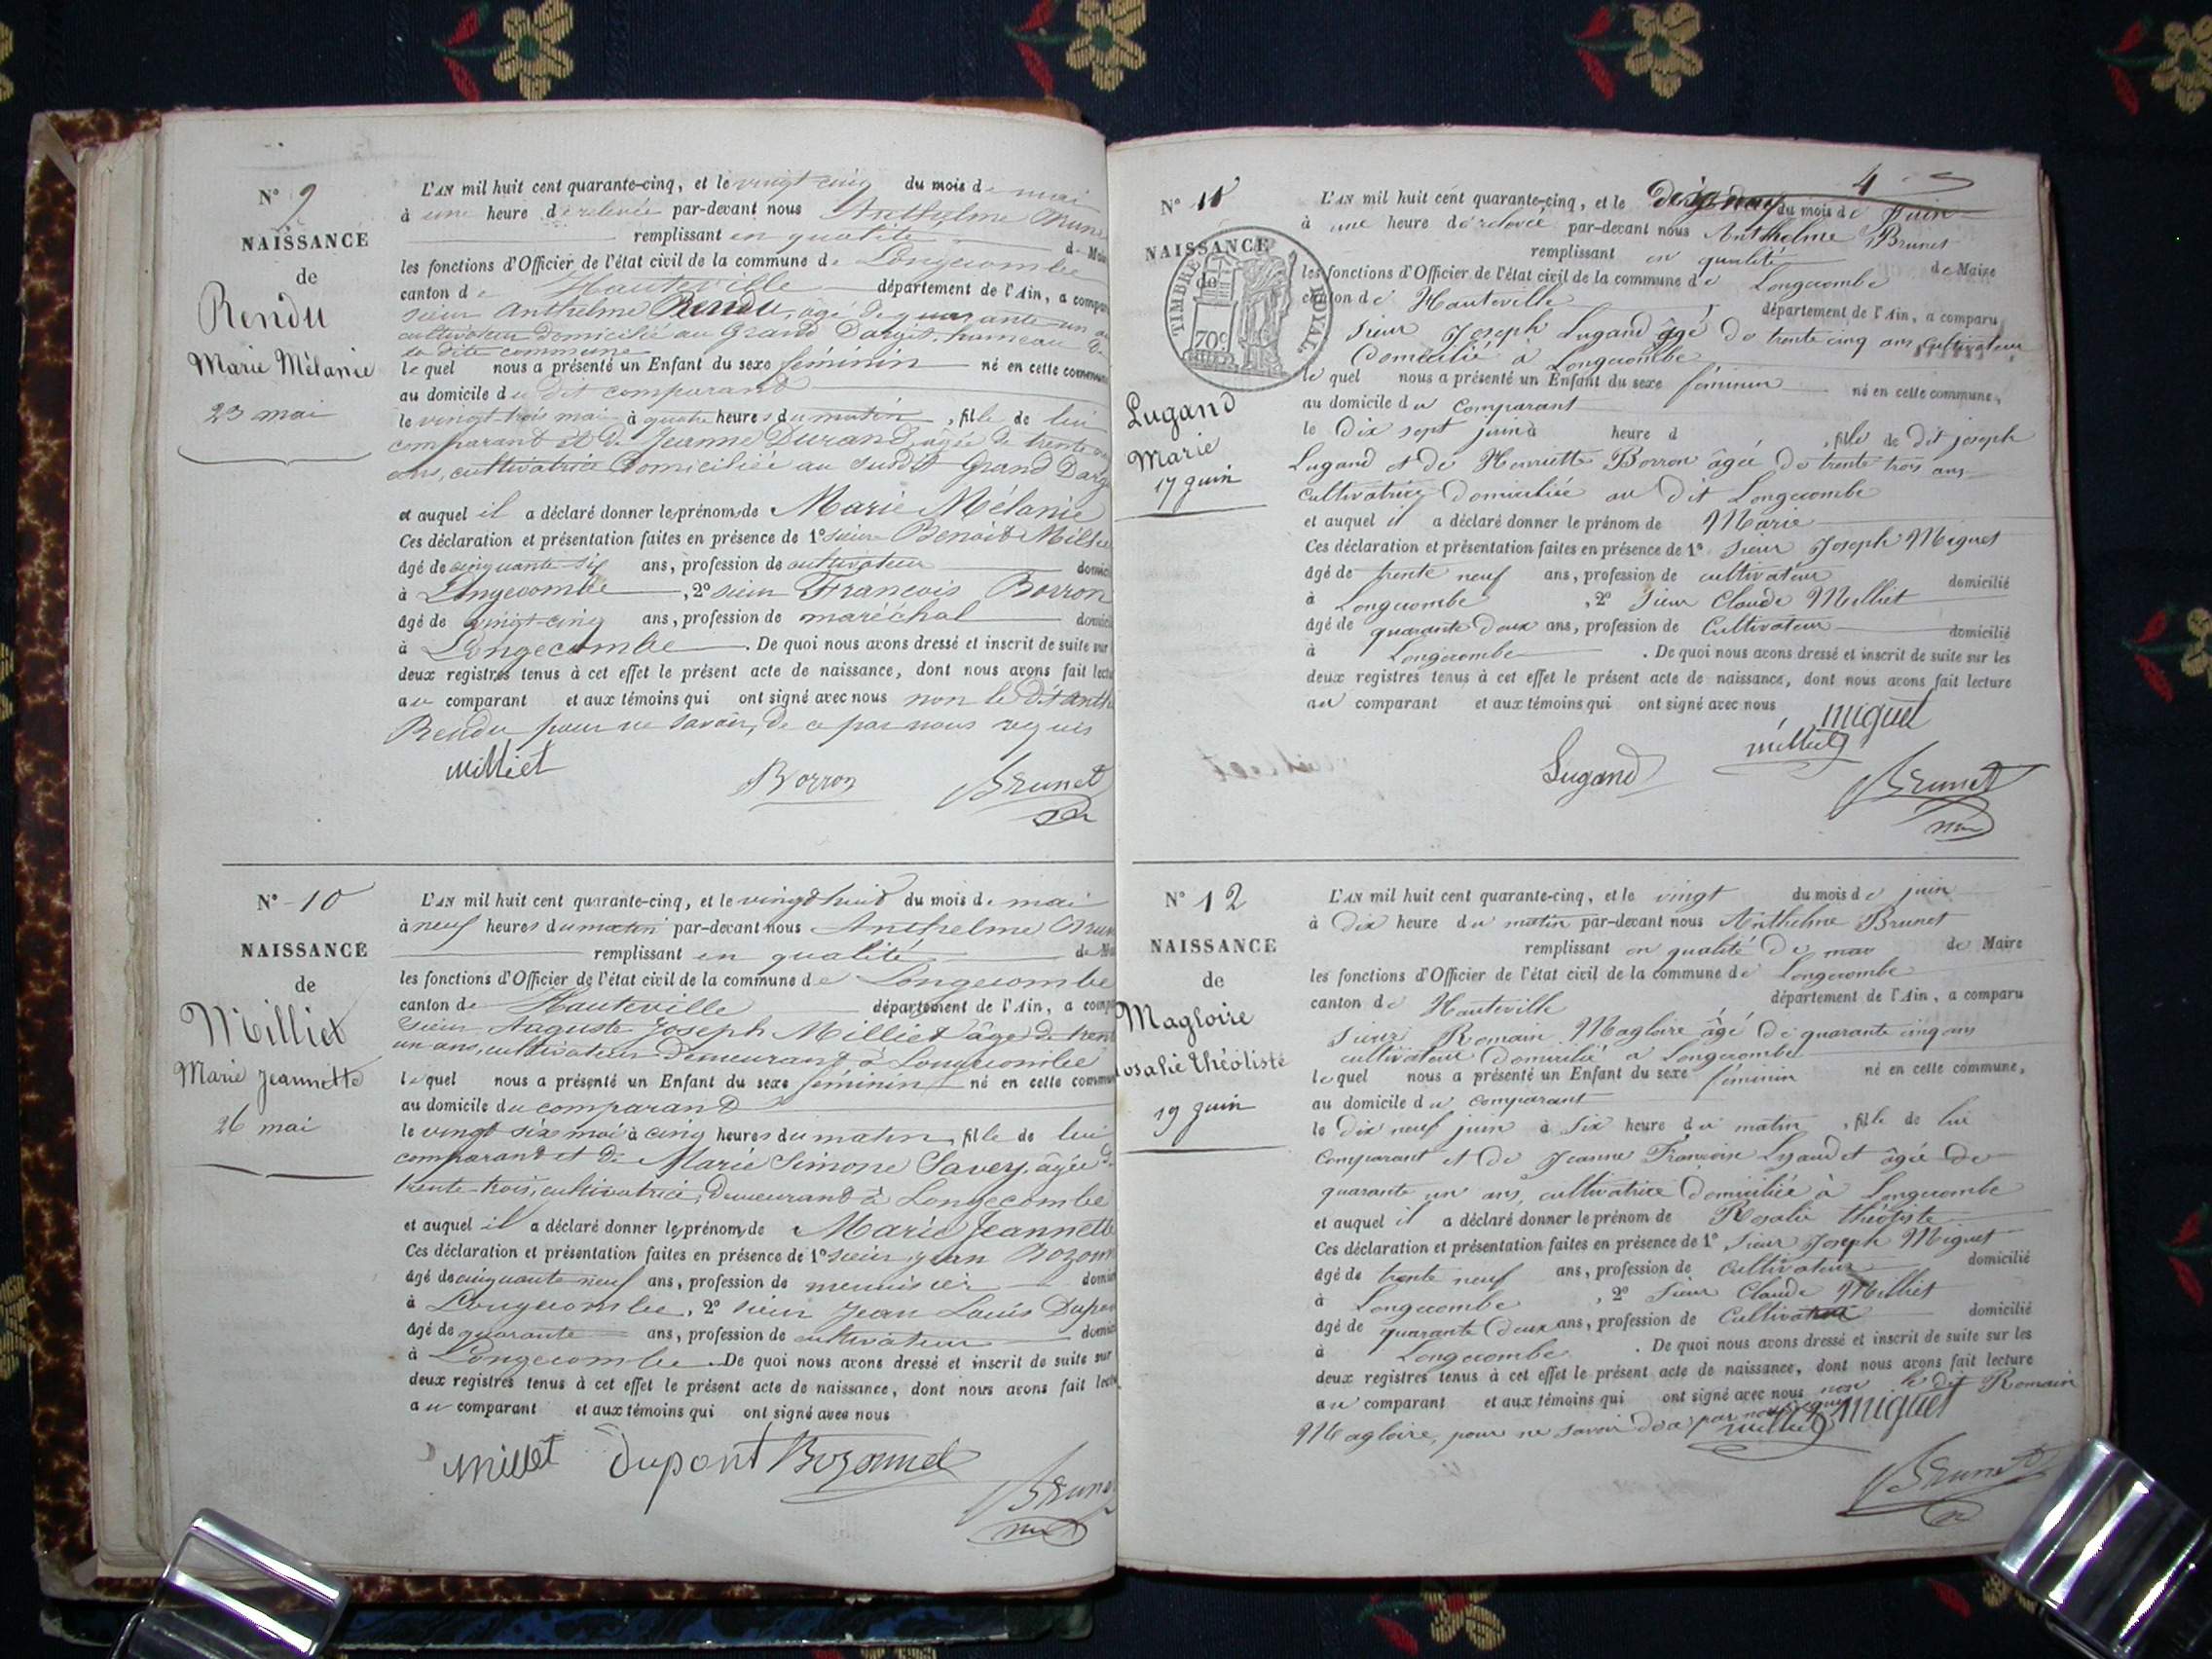 N° 9
NAISSANCE
de
Rendu
Marie Mélanie
23 mai
L'AN mil huit cent quarante-cinq, et le vingt cinq du mois de mai
à une heure de relevée par-devant nous Anthelme Brune
remplissant en qualité de Mai
les fonctions d'Officier de l'état civil de la commune de Longecombe
canton de Hauteville département de l'Ain, a compa
sieur Anthelme Rendu, âgé de quarante un
cultivateur domicilié au Grand Dargis, hameau de
la dite commune
lequel nous a présenté un Enfant du sexe féminin né en cette commune
au domicile du dit comparand
le vingt-trois mai à quatre heures du matin, fille de lui
comparand et de Jeanne Durand, âgée de trente
ans, cultivatrice domiciliée au susdit Grand Darg
et auquel il a déclaré donner les prénoms de Marie Mélanie
Ces déclaration et présentation faites en présence de 1° sieur Benoit Millie
âgé de cinquante six ans, profession de cultivateur domic
à Longecombe, 2° sieur François Borron
âgé de vingt-cinq ans, profession de maréchal domici
à Longecombe. De quoi nous avons dressé et inscrit de suite sur
deux registres tenus à cet effet le présent acte de naissance, dont nous avons fait lectu
au comparant et aux témoins qui ont signé avec nous non le dit anth
Rendu pour ne savoir, de ce par nous requis
Milliet Borron Brunet
N° 10
NAISSANCE
de
Milliet
Marie Jeannette
26 mai
L'AN mil huit cent quarante-cinq, et le vingt huit du mois de mai
à neuf heures du matin par-devant nous Anthelme Brun
remplissant en qualité de Ma
les fonctions d'Officier de l'état civil de la commune de Longecombe
canton de Hauteville département de l'Ain, a comp
sieur Auguste Joseph Milliet âgé de trent
un ans, cultivateur demeurant à Longecombe
lequel nous a présenté un Enfant du sexe féminin né en cette commun
au domicile du comparand
le vingt six mai à cinq heures du matin, fille de lui
comparand et de Marie Simone Savey, âgée de
trente-trois, cultivatrice, demeurant à Longecombe
et auquel il a déclaré donner les prénoms de Marie Jeannette
Ces déclaration et présentation faites en présence de 1° sieur jean Bozonn
âgé de cinquante neuf ans, profession de menuisier domici
à Longecombe, 2° sieur Jean Louis Dupon
âgé de quarante ans, profession de cultivateur domici
à Longecombe. De quoi nous avons dressé et inscrit de suite sur
deux registres tenus à cet effet le présent acte de naissance, dont nous avons fait lect
au comparant et aux témoins qui ont signé avec nous
Millet Dupont Bozonnet
Brune
4
N° 11
NAISSANCE
de
TIMBRE ROYAL
70c
Lugand
Marie
17 juin
L'AN mil huit cent quarante-cinq, et le du mois de Juin
à une heure de relevée par-devant nous Anthelme Brunet
remplissant en qualité de Maire
les fonctions d'Officier de l'état civil de la commune de Longecombe
canton de Hauteville département de l'Ain, a comparu
Sieur Joseph Lugand âgé de trente cinq ans cultivateur
Domicilié à Longecombe
le quel nous a présenté un Enfant du sexe féminin né en cette commune,
au domicile du comparant
le dix sept juin à heure d , fille de dit joseph
Lugand et de Henriette Borron âgée de trente trois ans
cultivatrice domiciliée au dit Longecombe
et auquel il a déclaré donner le prénom de Marie
Ces déclaration et présentation faites en présence de 1° Sieur Joseph Miguet
âgé de trente neuf ans, profession de cultivateur domicilié
à Longecombe, 2° Sieur Claude Milliet
âgé de quarante deux ans, profession de Cultivateur domicilié
à Longecombe. De quoi nous avons dressé et inscrit de suite sur les
deux registres tenus à cet effet le présent acte de naissance, dont nous avons fait lecture
au comparant et aux témoins qui ont signé avec nous miguet
Lugand milliet
Brunet
N° 12
NAISSANCE
de
Magloire
osalie théotiste
19 juin
L'AN mil huit cent quarante-cinq, et le vingt du mois de juin
à dix heure du matin par-devant nous Anthelme Brunet
remplissant en qualité de mar de Maire
les fonctions d'Officier de l'état civil de la commune de Longecombe
canton de Hauteville département de l'Ain, a comparu
Sieur Romain Magloire âgé de quarante cinq ans
cultivateur domicilié a Longecombe
lequel nous a présenté un Enfant du sexe féminin né en cette commune,
au domicile du comparant
le dix neuf juin à six heure du matin, fille de lui
comparant et de Jeanne Françoise Lyaudet âgée de
quarante un ans, cultivatrice domiciliée à Longecombe
et auquel il a déclaré donner le prénom de Rosalie théotiste
Ces déclaration et présentation faites en présence de 1° Sieur Joseph Miguet
âgé de trente neuf ans, profession de Cultivateur domicilié
à Longecombe, 2° Sieur Claude Milliet
âgé de quarante deux ans, profession de domicilié
à Longecombe. De quoi nous avons dressé et inscrit de suite sur les
deux registres tenus à cet effet le présent acte de naissance, dont nous avons fait lecture
au comparant et aux témoins qui ont signé avec nous non le dit Romain
Magloire, pour ne savoir de ce par nous requis milliet miguet
Brunet